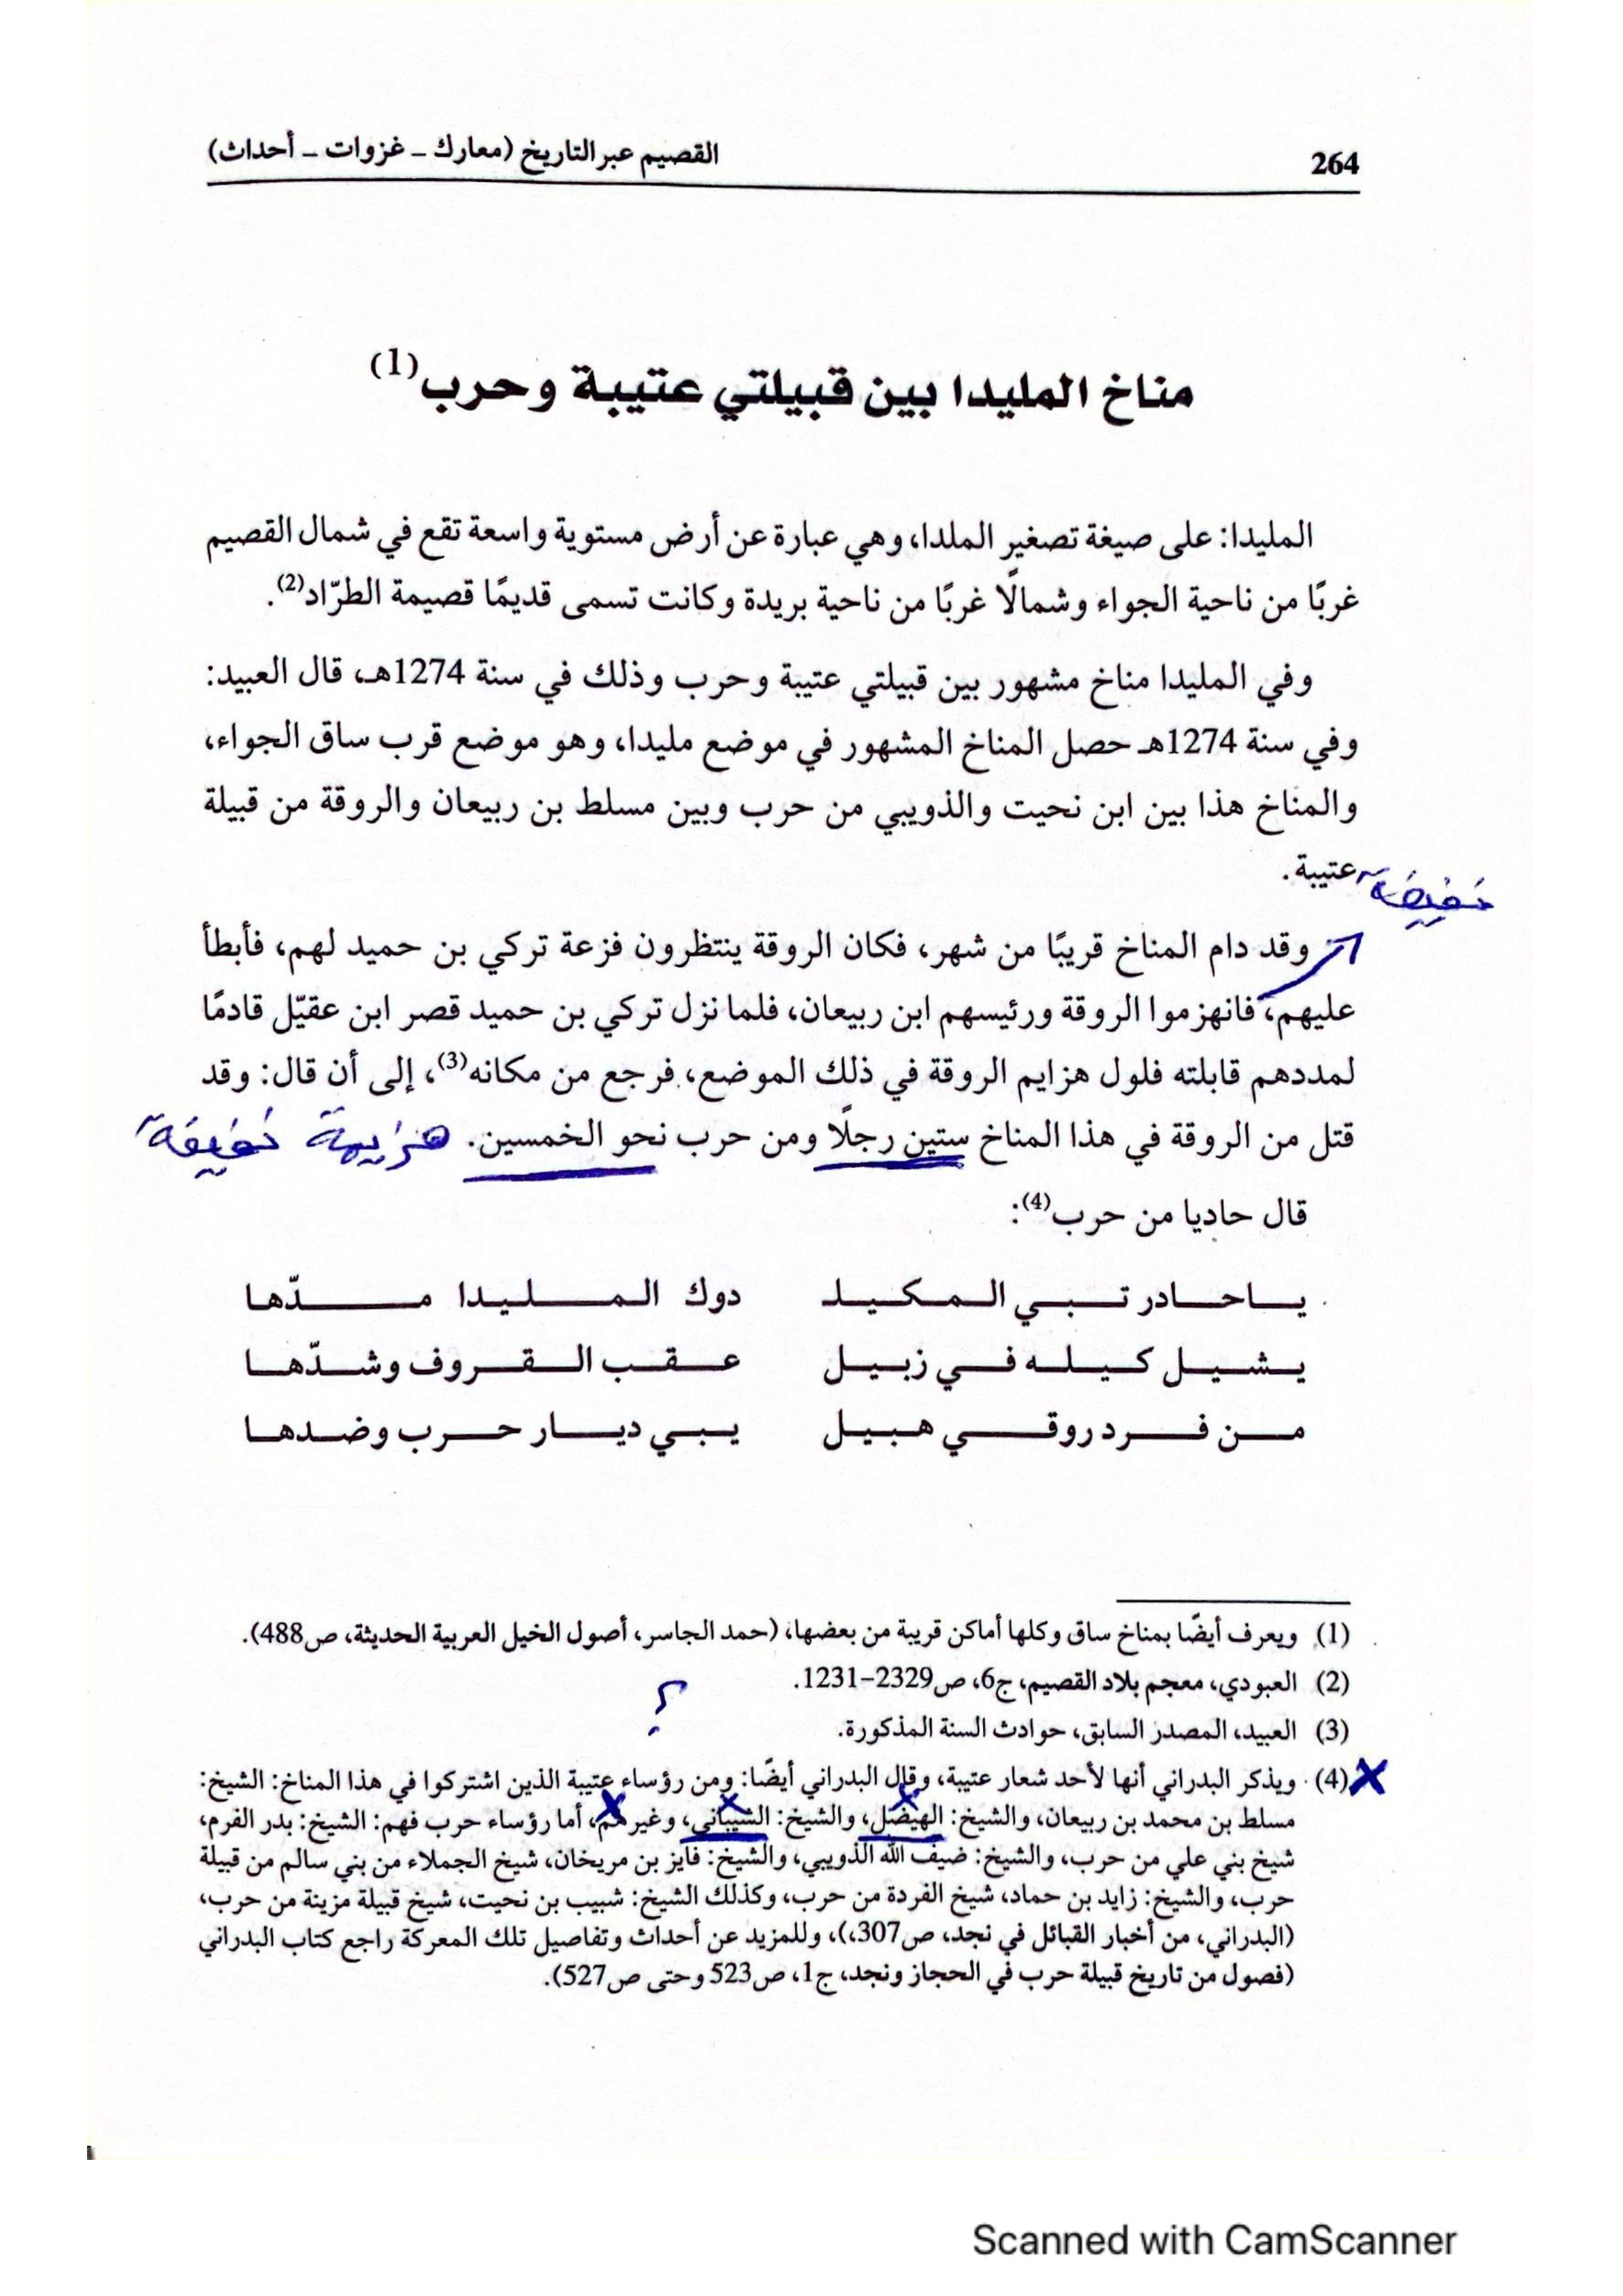 264
القصيم عبر التاريخ (معارك – غزوات – أحداث)
مناخ المليدا بين قبيلتي عتيبة وحرب(1)
المليدا: على صيغة تصغير الملدا، وهي عبارة عن أرض مستوية واسعة تقع في شمال القصيم
غربًا من ناحية الجواء وشمالًا غربًا من ناحية بريدة وكانت تسمى قديمًا قصيمة الطرّاد(2).
وفي المليدا مناخ مشهور بين قبيلتي عتيبة وحرب وذلك في سنة 1274هـ، قال العبيد:
وفي سنة 1274هـ حصل المناخ المشهور في موضع مليدا، وهو موضع قرب ساق الجواء،
والمناخ هذا بين ابن نحيت والذويبي من حرب وبين مسلط بن ربيعان والروقة من قبيلة
عتيبة.
خفيفة
وقد دام المناخ قريبًا من شهر، فكان الروقة ينتظرون فزعة تركي بن حميد لهم، فأبطأ
عليهم، فانهزموا الروقة ورئيسهم ابن ربيعان، فلما نزل تركي بن حميد قصر ابن عقيّل قادمًا
لمددهم قابلته فلول هزايم الروقة في ذلك الموضع، فرجع من مكانه(3)، إلى أن قال: وقد
قتل من الروقة في هذا المناخ ستين رجلًا ومن حرب نحو الخمسين. هزيمة خفيفة
قال حاديا من حرب(4):
يـاحـادر تـبـي الـمـكـيـلـ دوك الـمـلـيـدا مـدّهـا
يـشـيـل كـيـلـه فـي زبـيـل عـقـب الـقـروف وشـدّهـا
مـن فـرد روقـي هـبـيـل يـبـي ديـار حـرب وضـدهـا
(1) ويعرف أيضًا بمناخ ساق وكلها أماكن قريبة من بعضها، (حمد الجاسر، أصول الخيل العربية الحديثة، ص488).
(2) العبودي، معجم بلاد القصيم، ج6، ص2329–1231.
؟
(3) العبيد، المصدر السابق، حوادث السنة المذكورة.
(4) ويذكر البدراني أنها لأحد شعار عتيبة، وقال البدراني أيضًا: ومن رؤساء عتيبة الذين اشتركوا في هذا المناخ: الشيخ:
مسلط بن محمد بن ربيعان، والشيخ: الهيضل، والشيخ: الشيباني، وغيرهم، أما رؤساء حرب فهم: الشيخ: بدر الفرم،
شيخ بني علي من حرب، والشيخ: ضيف الله الذويبي، والشيخ: فايز بن مريخان، شيخ الجملاء من بني سالم من قبيلة
حرب، والشيخ: زايد بن حماد، شيخ الفردة من حرب، وكذلك الشيخ: شبيب بن نحيت، شيخ قبيلة مزينة من حرب،
(البدراني، من أخبار القبائل في نجد، ص307،)، وللمزيد عن أحداث وتفاصيل تلك المعركة راجع كتاب البدراني
(فصول من تاريخ قبيلة حرب في الحجاز ونجد، ج1، ص523 وحتى ص527).
Scanned with CamScanner